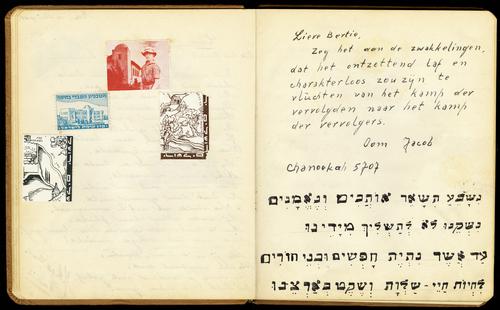 Lieve Bertie,
Zeg het aan de zwakkelingen,
dat het ontzettend laf en
charakterloos zou zijn te
vluchten van het kamp der
vervolgden naar het kamp
der vervolgers.
Oom Jacob
Chanoekah 5707
תשאר ונאמנים
נשקנו לא תשליך מידינו
עד אשר נהיה חפשים ובני חורים
לחיות חיי-שלוה ושקט בארצנו